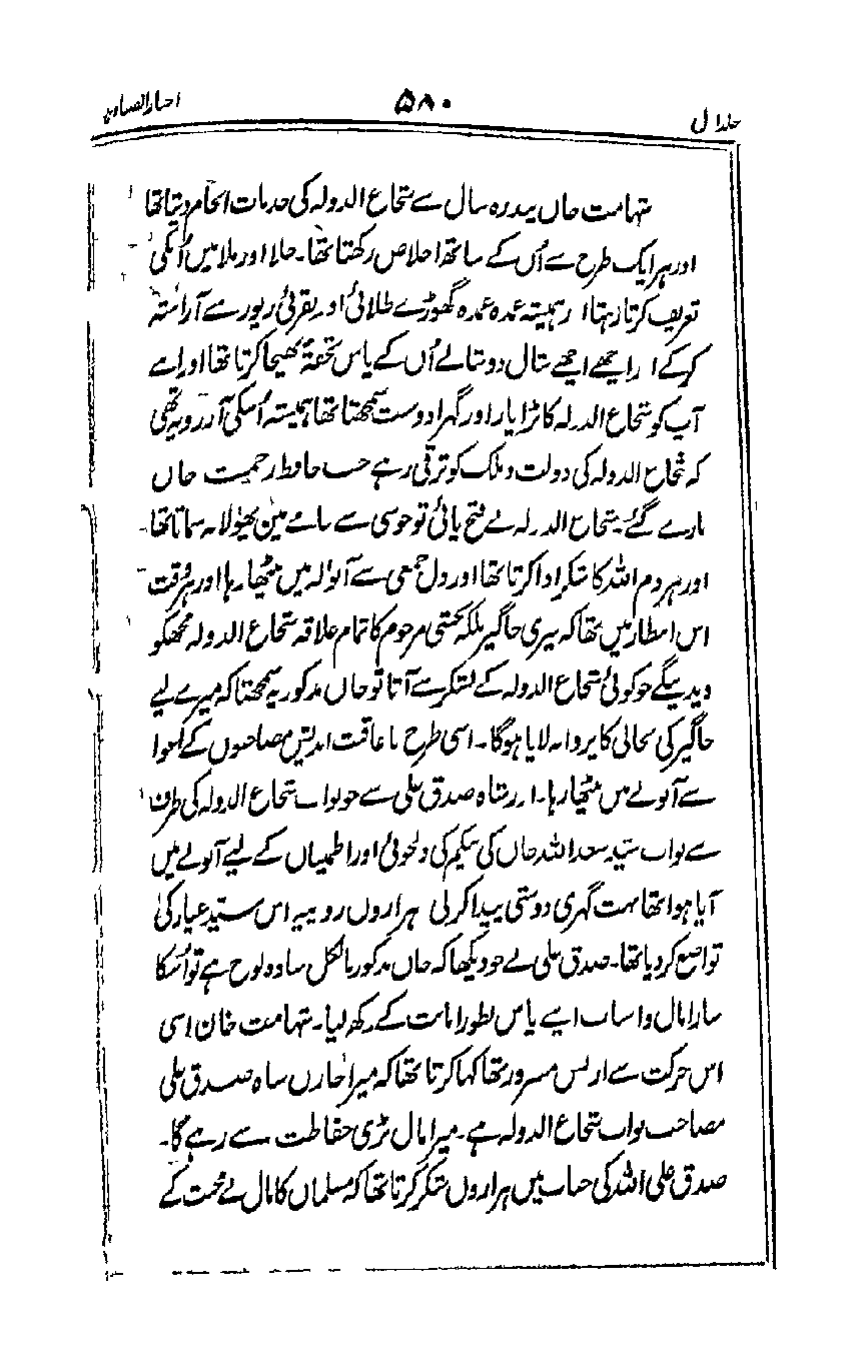 جلد اول ۵۸۰ اخبار الصنادید
شہامت خاں پندرہ سال سے شجاع الدولہ کی خدمات انجام دیتا تھا
اور ہر ایک طرح سے اُن کے ساتھ اخلاص رکھتا تھا۔ خلا اور ملا میں اُنکی
تعریف کرتا رہتا اور ہمیشہ عمدہ عمدہ گھوڑے طلائی اور نقرئی زیور سے آراستہ
کرکے اور اچھے اچھے شال دوشالے اُن کے پاس تحفۃً بھیجا کرتا تھا اور اپنے
آپ کو شجاع الدولہ کا بڑا یار اور گہرا دوست سمجھتا تھا ہمیشہ اُسکی آرزو یہ تھی
کہ شجاع الدولہ کی دولت و ملک کو ترقی رہے جب حافظ رحمت خاں
مارے گئے شجاع الدولہ نے فتح پائی تو خوشی سے جامے میں پھولا نہ سماتا تھا۔
اور ہر دم اللہ کا شکر ادا کرتا تھا اور دل جمعی سے آنولہ میں بیٹھا رہا اور ہر وقت
اس انتظار میں تھا کہ میری جاگیر بلکہ بخشی مرحوم کا تمام علاقہ شجاع الدولہ مجھکو
دیدینگے جو کوئی شجاع الدولہ کے لشکر سے آتا تو خاں مذکور یہ سمجھتا کہ میرے لیے
جاگیر کی بحالی کا پروانہ لایا ہوگا۔ اسی طرح ناعاقبت اندیش مصاحبوں کے اغوا
سے آنولے میں بیٹھا رہا۔ اور شاہ صدق علی سے جو نواب شجاع الدولہ کی طرف
سے نواب سید سعد اللہ خاں کی بیگم کی دلجوئی اور اطمینان کے لیے آنولے میں
آیا ہوا تھا بہت گہری دوستی پیدا کرلی ہزاروں روپیہ اس سید عیار کی
تواضع کر دیا تھا۔ صدق علی نے جو دیکھا کہ خاں مذکور بالکل سادہ لوح ہے تو اُسکا
سارا مال و اسباب اپنے پاس بطور امانت کے رکھ لیا۔ شہامت خان اسی
اس حرکت سے ازبس مسرور تھا کہا کرتا تھا کہ میرا خازن شاہ صدق علی
مصاحب نواب شجاع الدولہ ہے۔ میرا مال بڑی حفاظت سے رہے گا۔
صدق علی اللہ کی جناب میں ہزاروں شکر کرتا تھا کہ مسلمان کا مال بے محنت کے